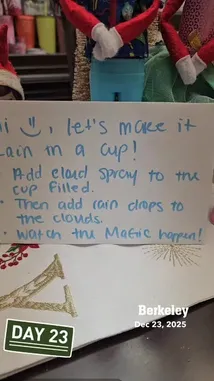 Hi :), let's make it
rain in a cup!
• Add cloud spray to the
cup filled.
• Then add rain drops to
the clouds.
• Watch the Magic happen!
Berkeley
Dec 23, 2025
DAY 23